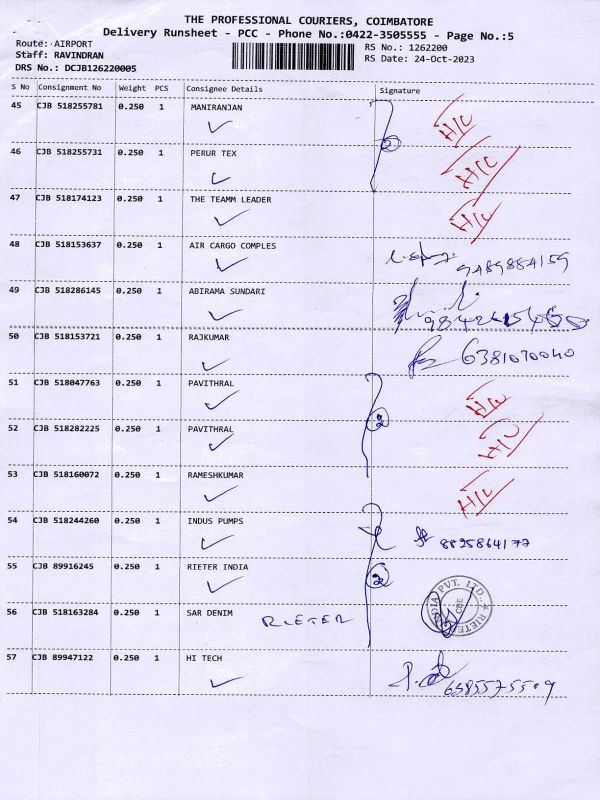 THE PROFESSIONAL COURIERS, COIMBATORE
Delivery Runsheet - PCC - Phone No.:0422-3505555 - Page No.:5
Route: AIRPORT RS No.: 1262200
Staff: RAVINDRAN RS Date: 24-Oct-2023
DRS No.: DCJB126220005
S No Consignment No Weight PCS Consignee Details Signature
45 CJB 518255781 0.250 1 MANIRANJAN H/C
2
46 CJB 518255731 0.250 1 PERUR TEX H/C
47 CJB 518174123 0.250 1 THE TEAMM LEADER H/C
48 CJB 518153637 0.250 1 AIR CARGO COMPLES
9489884159
49 CJB 518286145 0.250 1 ABIRAMA SUNDARI
50 CJB 518153721 0.250 1 RAJKUMAR
6381070040
51 CJB 518047763 0.250 1 PAVITHRAL H/C
2
52 CJB 518282225 0.250 1 PAVITHRAL H/C
53 CJB 518160072 0.250 1 RAMESHKUMAR H/C
54 CJB 518244260 0.250 1 INDUS PUMPS
8895864177
55 CJB 89916245 0.250 1 RIETER INDIA
2
56 CJB 518163284 0.250 1 SAR DENIM RIETER
PVT. LTD. CBE
57 CJB 89947122 0.250 1 HI TECH